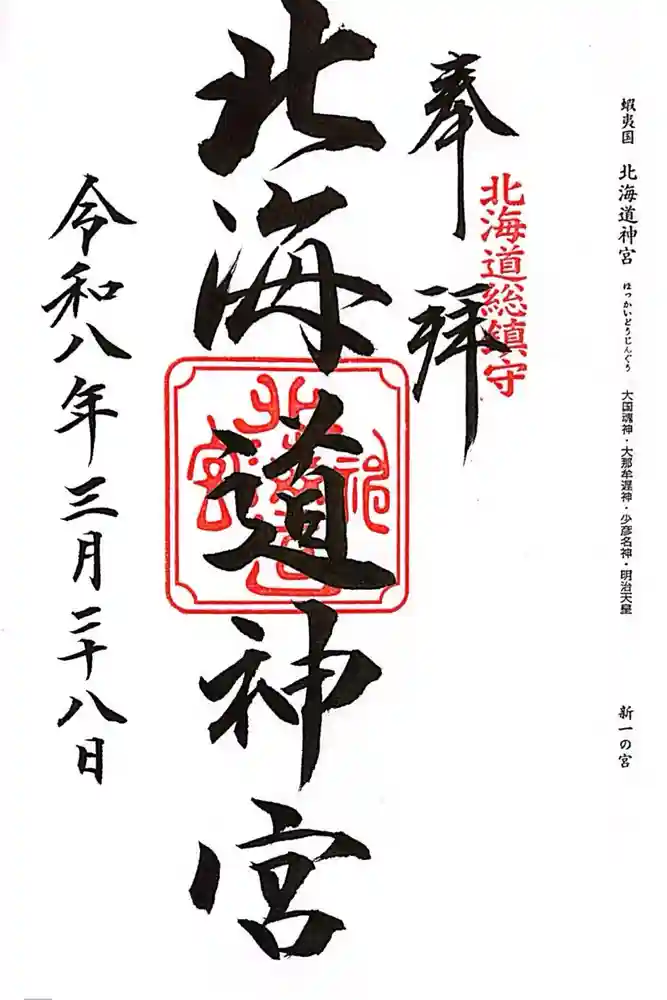 蝦夷国 北海道神宮 ほっかいどうじんぐう 大国魂神・大那牟遅神・少彦名神・明治天皇 新一の宮
奉拝
北海道総鎮守
北海道神宮
令和八年三月二十八日